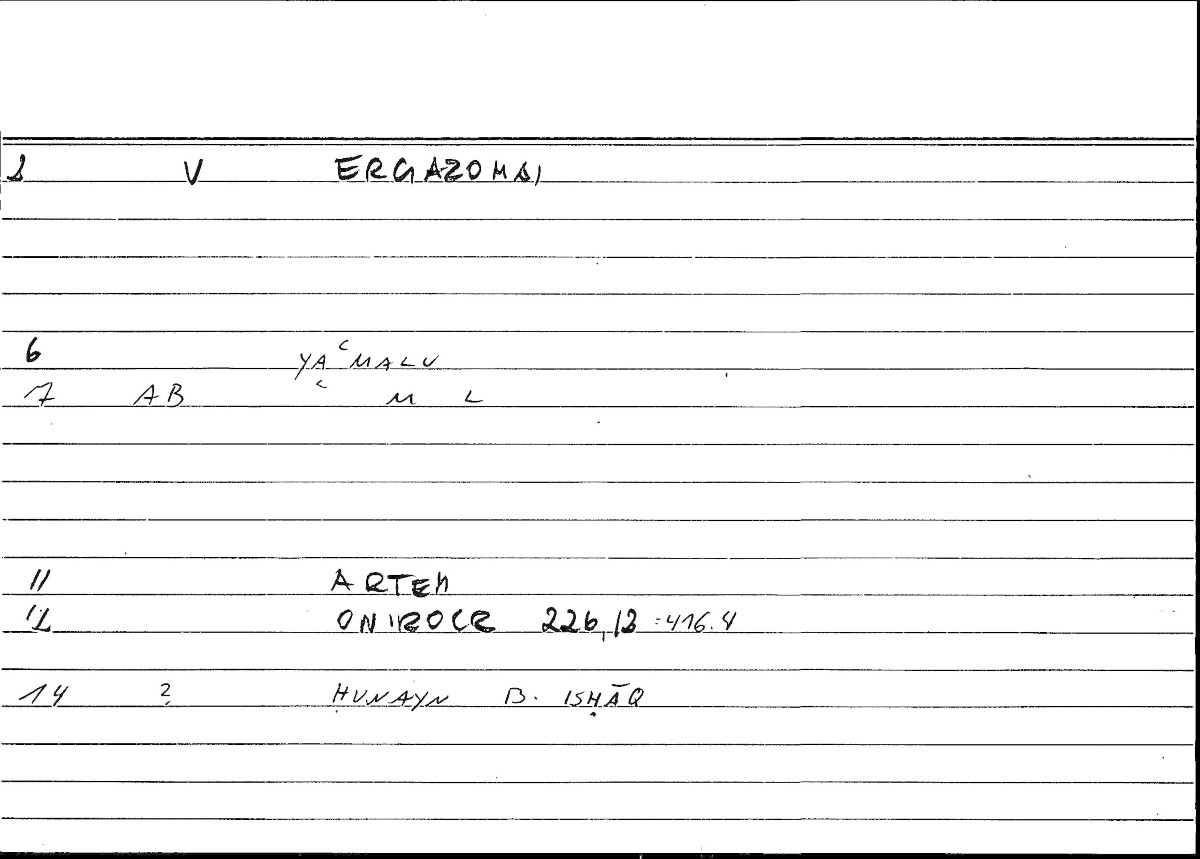 2 V ERGAZOMAI
6 YAʿMALU
7 AB ʿ M L
11 ARTEM
12 ONIROCR 226,13 =416.4
14 ? ḤUNAYN B. ISḤĀQ